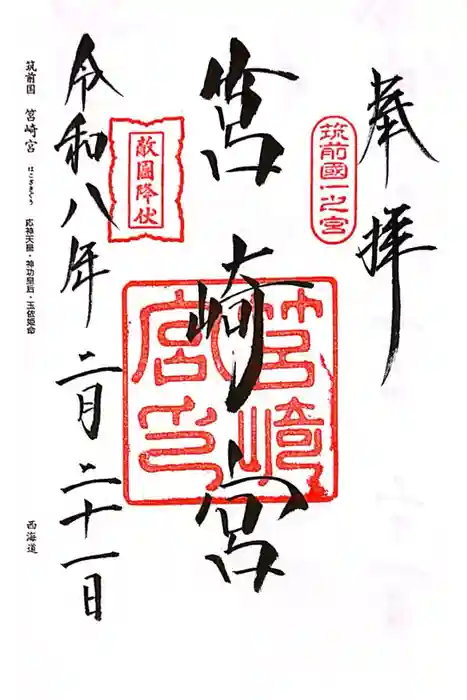 奉拝
筑前國一之宮
筥崎宮
筥崎
宮印
敵國降伏
令和八年二月二十一日
筑前国 筥崎宮 はこざきぐう 応神天皇・神功皇后・玉依姫命
西海道